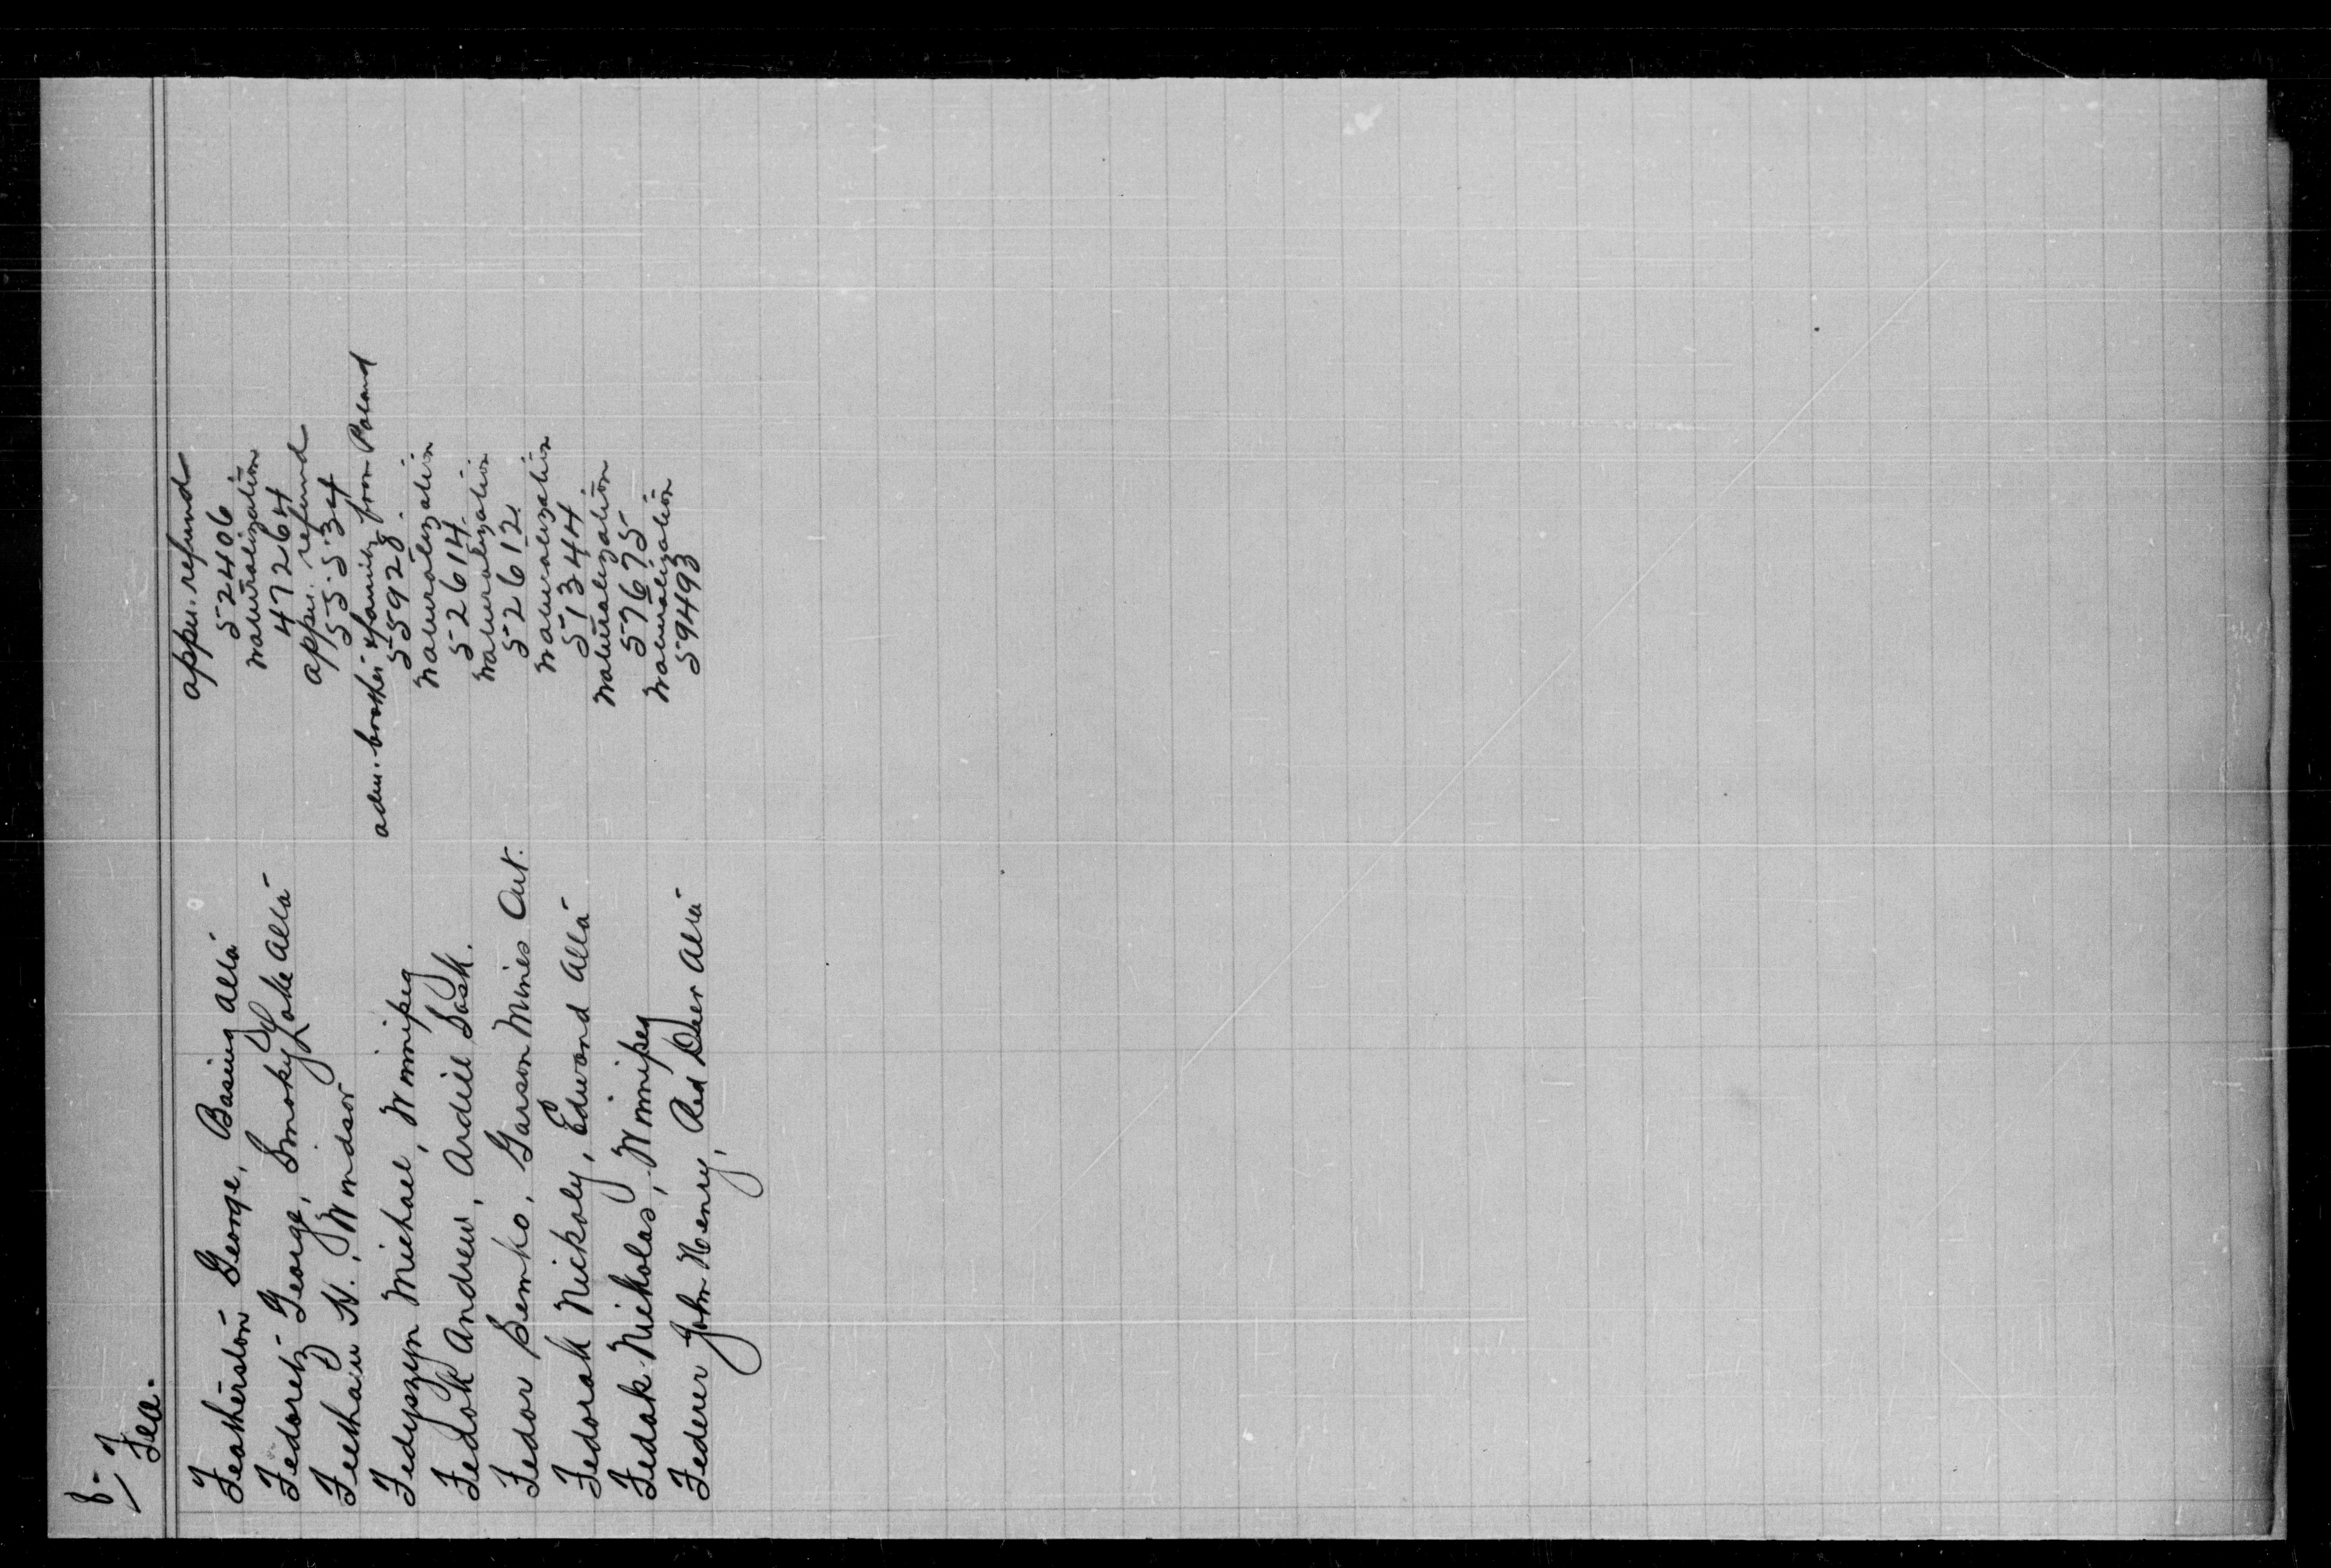 8-
Fea.
Featherston George, Basing Alta
appn. refund
52406
Fedoretz George, Smoky Lake Alta
naturalization
47264
Feetham H., Windsor
appn. refund
55534
Fedyszyn Michael, Winnipeg
adm. brother & family from Poland
55928
Fedok Andrew, Ardill Sask.
naturalization
52614
Fedor Semko, Garson Mines Ont.
naturalization
52612
Fedorak Nickoly, Edwand Alta
naturalization
51344
Fedak Nickolas, Winnipeg
naturalization
57675
Federer John Henry, Red Deer Alta
naturalization
59493